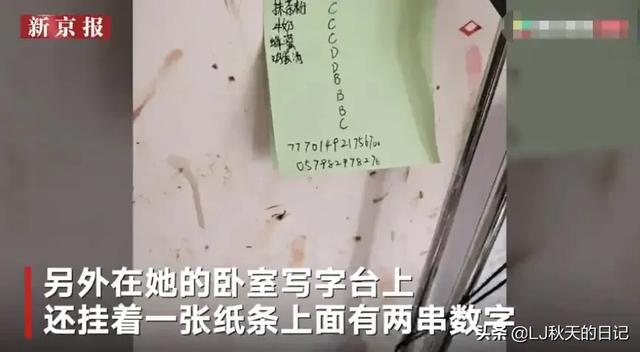 新京报
抹茶粉 C
牛奶 C
蜂蜜 C
鸡蛋清 D
D
B
B
B
C
另外在她的卧室写字台上
还挂着一张纸条上面有两串数字
头条 @LJ秋天的日记